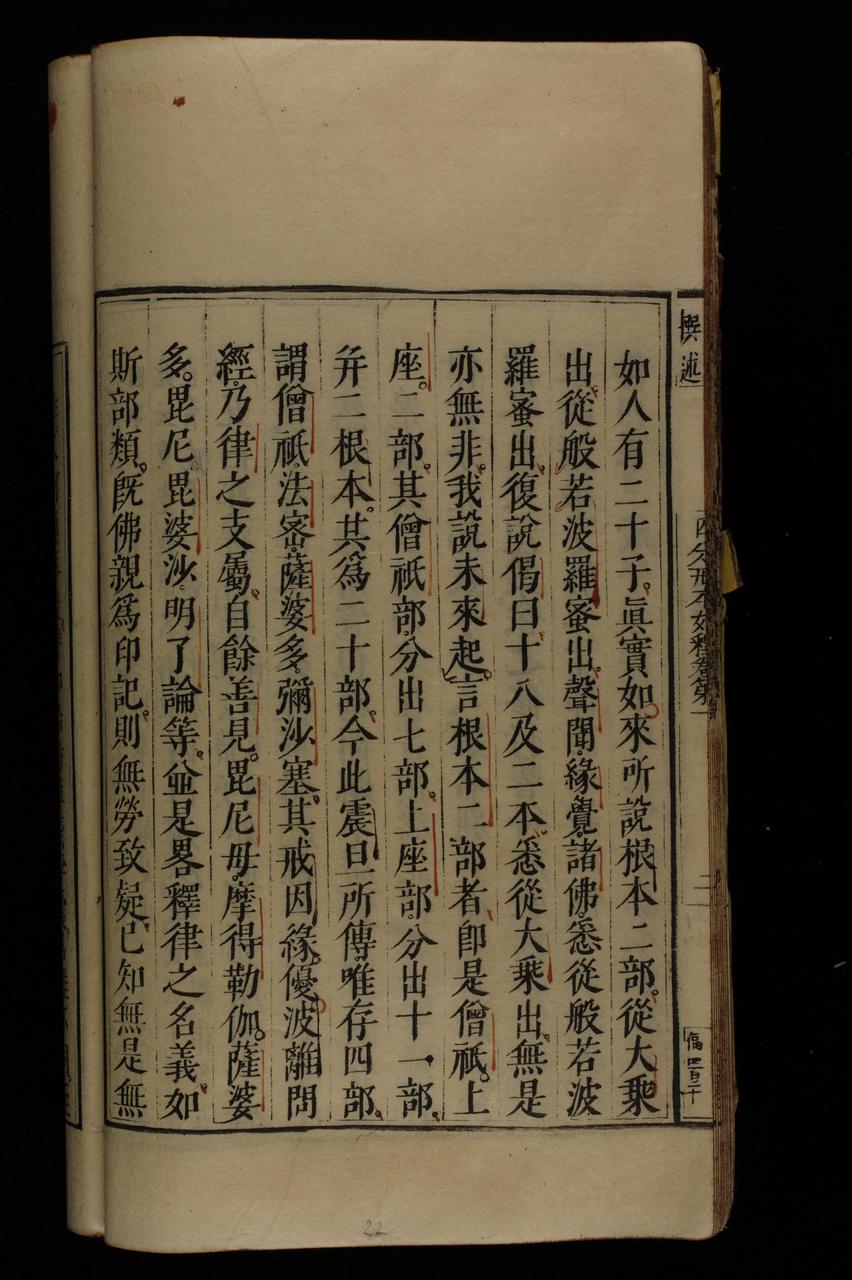 如人有二十子眞實如來所說根本二部從大乘
出從般若波羅蜜出聲聞緣覺諸佛悉從般若波
羅蜜出復說偈曰十八及二本悉從大乘出無是
亦無非我說未來起言根本二部者卽是僧祇上
座二部其僧祇部分出七部上座部分出十一部
并二根本其爲二十部今此震旦所傳唯存四部
謂僧祇法密薩婆多彌沙塞其戒因緣優波離問
經乃律之支屬自餘善見毘尼母摩得勒伽薩婆
多毘尼毘婆沙明了論等並是畧釋律之名義如
斯部類旣佛親爲印記則無勞致疑已知無是無
撰述
四分戒本如釋卷第一
二